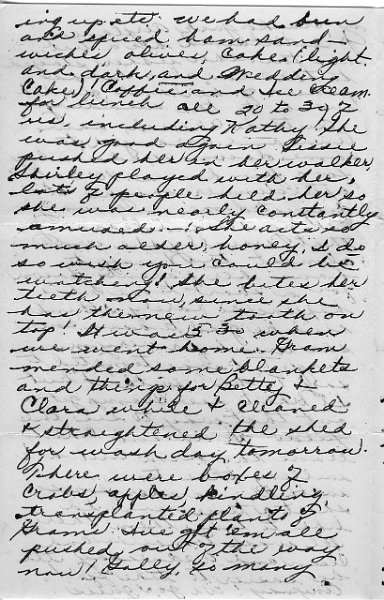 ing up etc. We had bun
and spiced ham sand-
wiches, olives, cake, (light
and dark, and Wedding
Cake)! Coffee and Ice Cream
for lunch all 20 to 30 of
us, including Kathy! She
was good again. Tissie
pushed her in her walker,
Shirley played with her,
lots of people held her so
she was nearly constantly
amused—! She acts so
much older, honey, I do
so wish you could be
watching! She bites her
teeth now, since she
has the new tooth on
top! It was 5:30 when
we went home. Gram
mended some blankets
and things for Betty &
Clara while I cleaned
& straightened the shed
for wash day tomorrow.
There were boxes of
crabs, apples, kindling,
transplanted plants of
Grams. I've got 'em all
pushed out of the way
now! Golly, so many